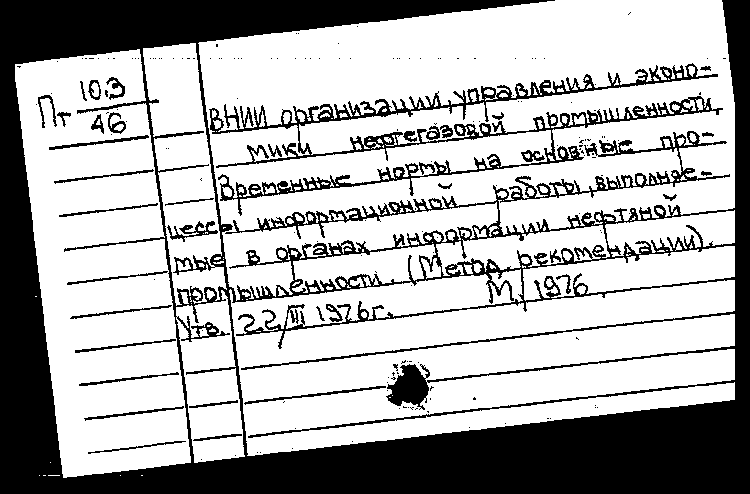 Пт 10.3/46
ВНИИ организации, управления и эконо-
мики нефтегазовой промышленности.
Временные нормы на основные про-
цессы информационной работы, выполняе-
мые в органах информации нефтяной
промышленности. (Метод. рекомендации).
Утв. 22/III 1976г. М., 1976.